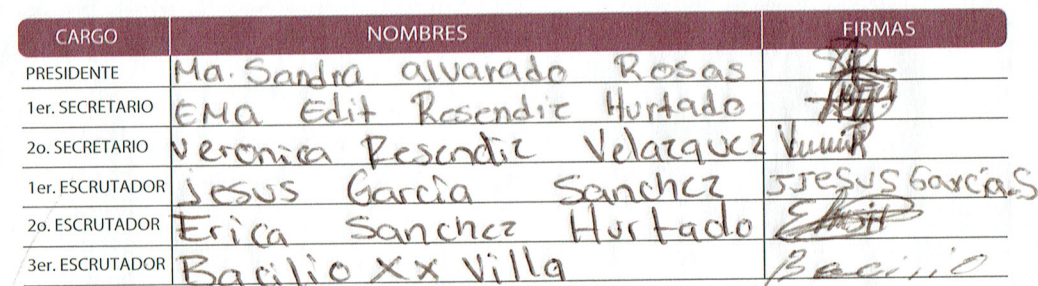 CARGO NOMBRES FIRMAS
PRESIDENTE Ma. Sandra alvarado Rosas
1er. SECRETARIO EMa Edit Resendiz Hurtado
2o. SECRETARIO Veronica Resendiz Velazquez
1er. ESCRUTADOR Jesus Garcia Sanchez JJesus Garcia.S
2o. ESCRUTADOR Erica Sanchez Hurtado
3er. ESCRUTADOR Bacilio XX Villa Bacilio